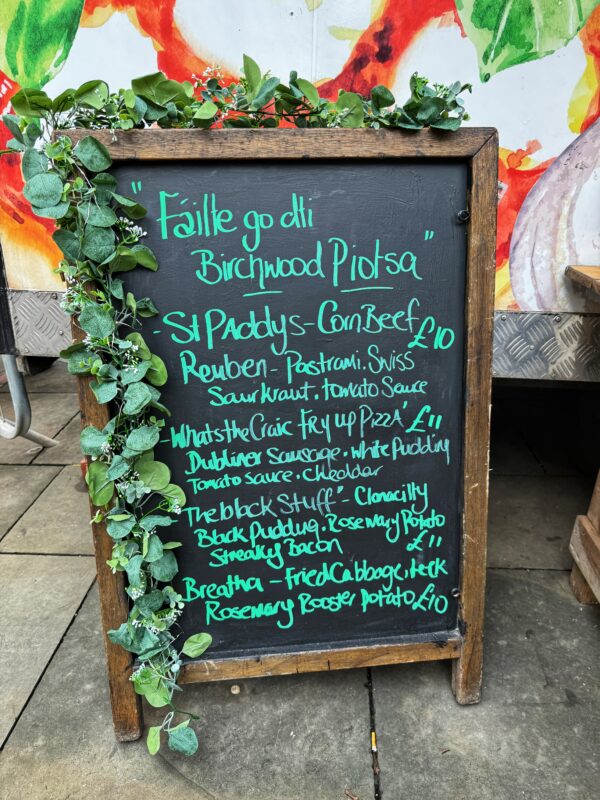 "Fáilte go dti
Birchwood Piotsa"
- St PAddys - Corn Beef £10
Reuben - Pastrami. Swiss
Saurkraut. tomato Sauce
- Whats the Craic Fry up PizzA' £11
Dubliner Sausage. White Pudding
Tomato sauce. Cheddar
The black Stuff" - Clonacilly
Black Pudding. Rosemary Potato
Streaky Bacon £11
Breatha - Fried Cabbage, Leek
Rosemary Rooster Potato £10